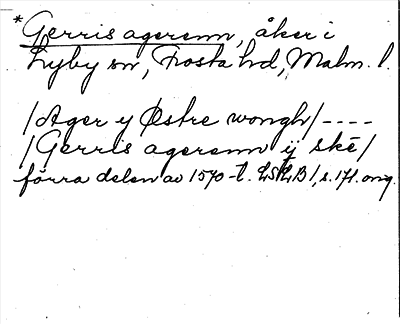 *Gerris agerenn, åker i
Lyby sn, Frosta hd, Malm. l.
/Ager y Østre wongh/ ----
/Gerris agerenn ij skē/
förra delen av 1570-t. LSLB 1, s. 171. orig.